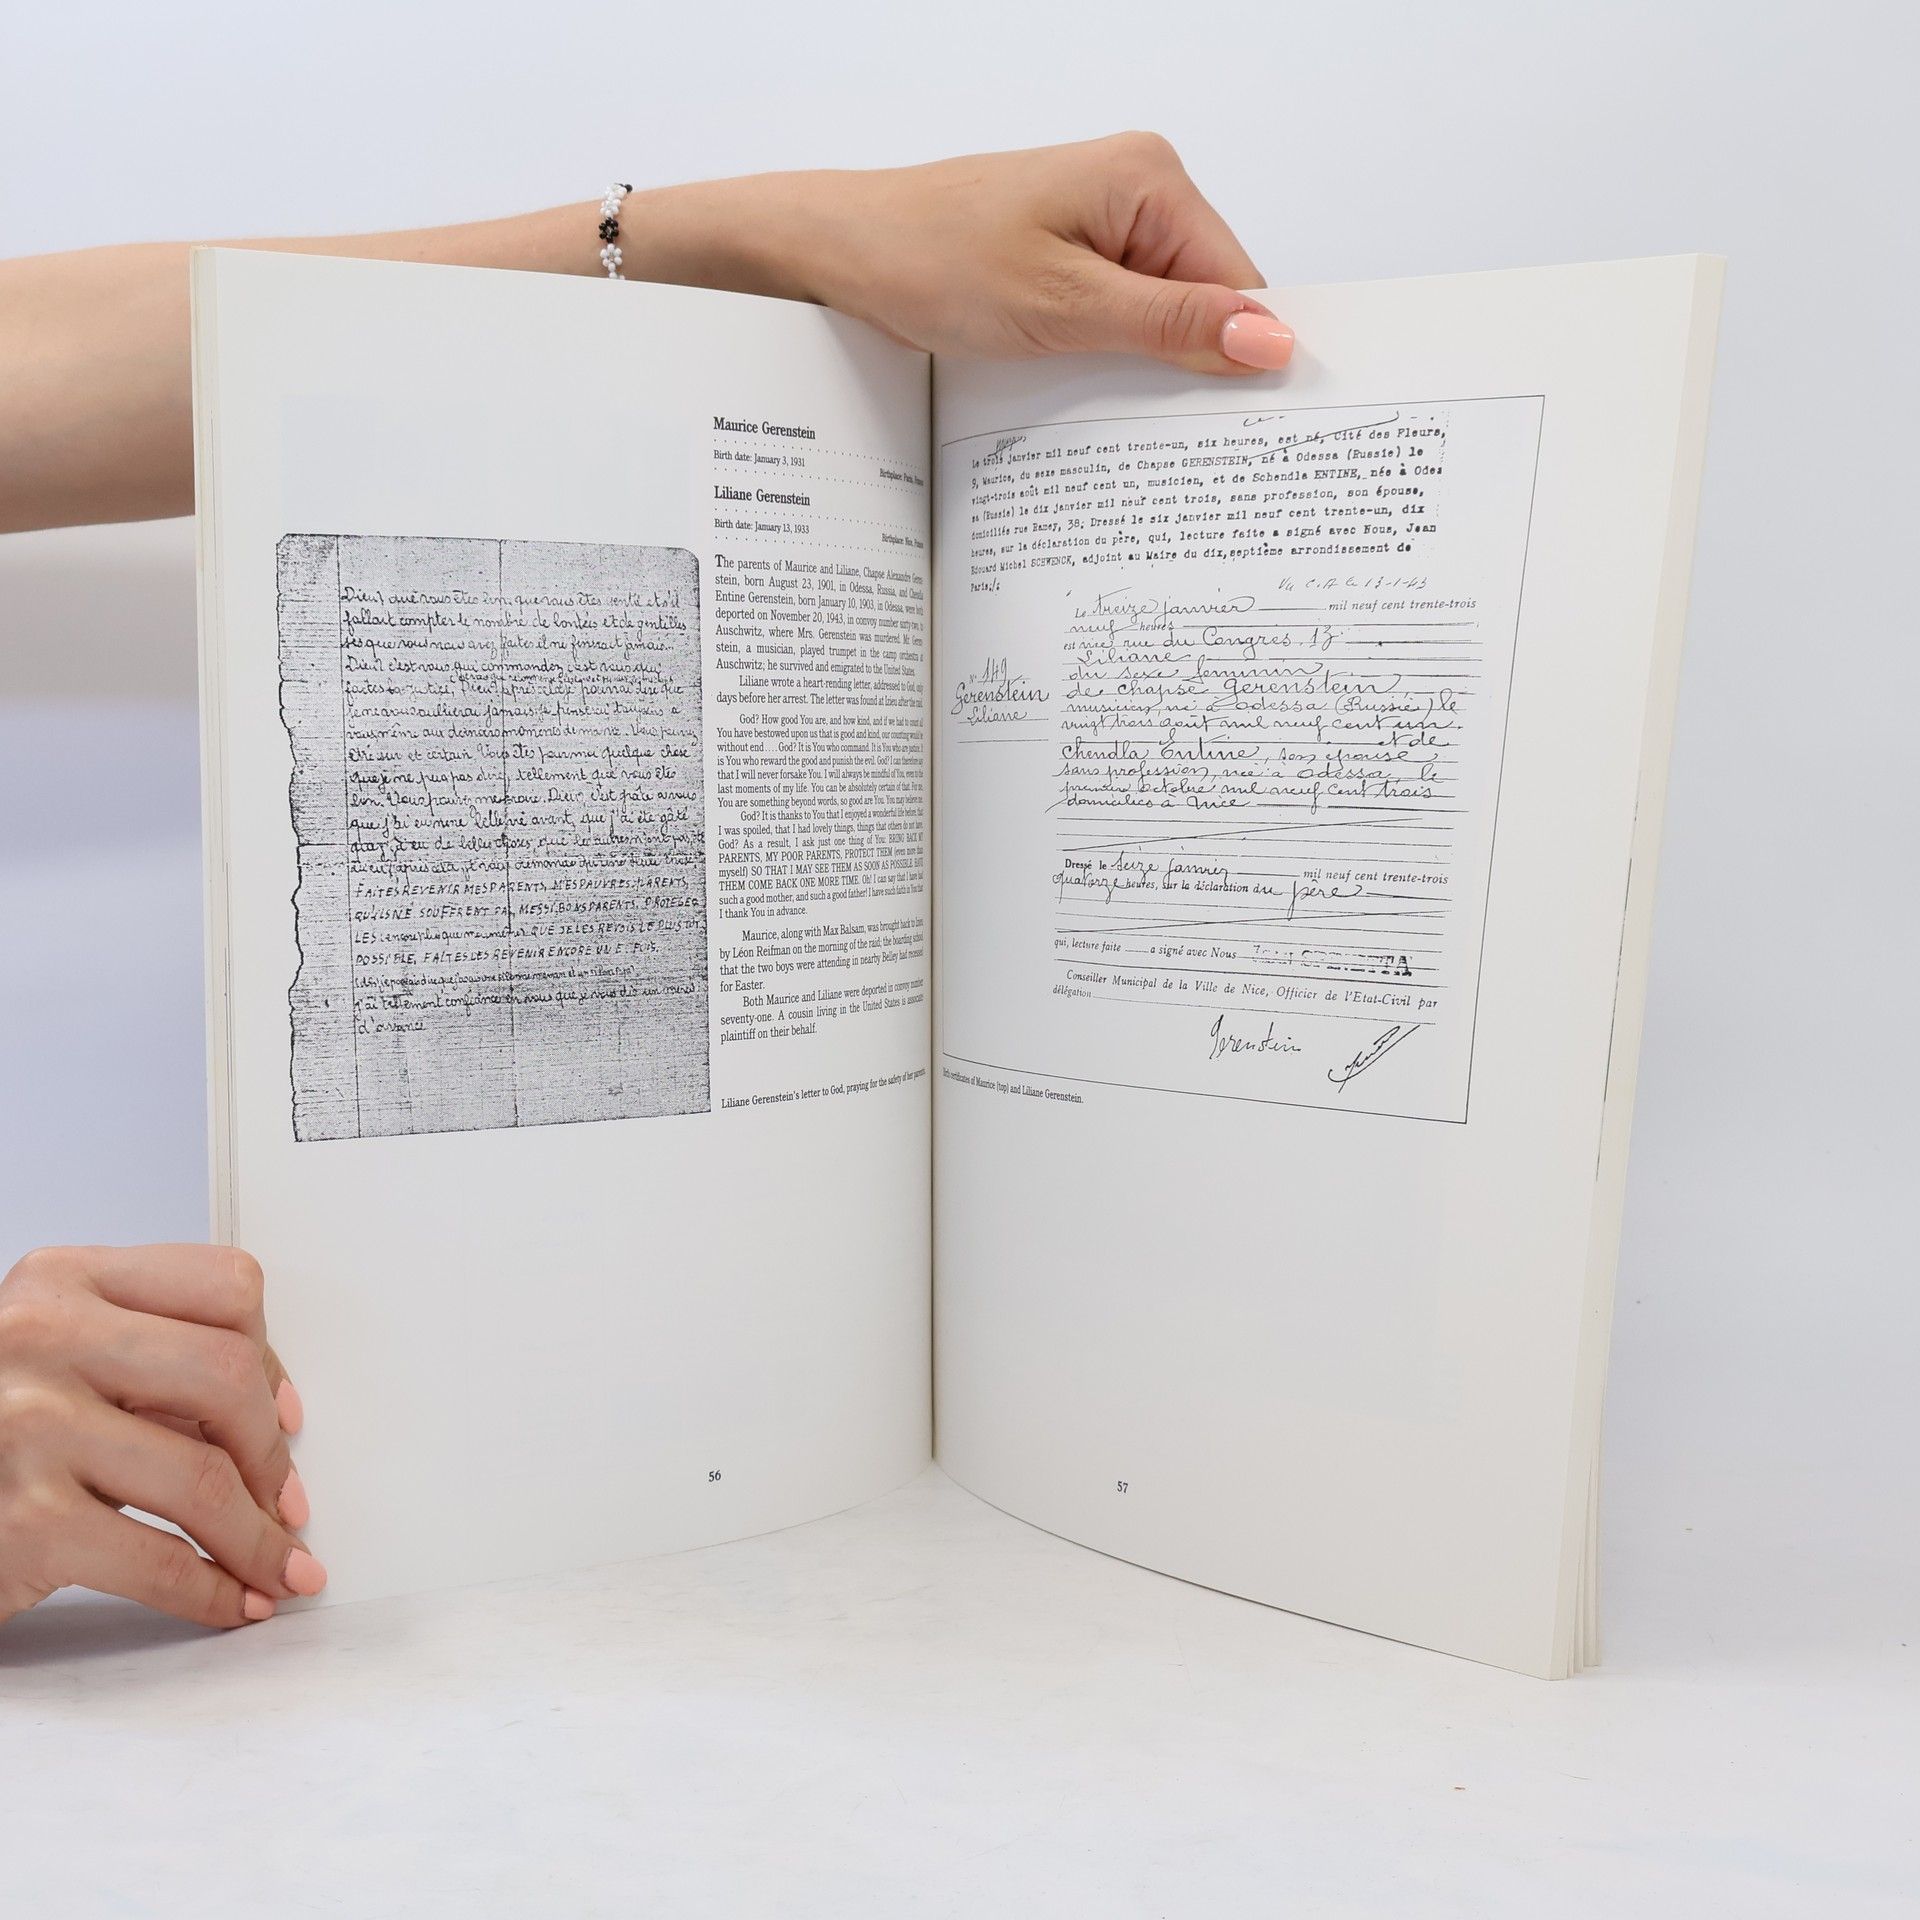 Dieu? que vous êtes bon, que vous êtes gentil et s'il
fallait compter le nombre de bontées et de gentilles
ses que vous nous avez faites il ne finirait jamais...
Dieu? c'est vous qui commandez, c'est vous qui
faites la justice,
vous même aux derniers moments de ma vie. Vous pouvez
être sur et certain. Vous êtes pour moi quelque chose
que je ne peux pas dire, tellement que vous êtes
bon. Vous pouvez me croire. Dieu? c'est grâce à vous
que j'ai eu une belle vie avant, que j'ai été gâté
que j'ai eu de belles choses, que les autres n'ont pas
FAITES REVENIR MES PARENTS, MES PAUVRES PARENTS,
POSSIBLE, FAITES LES REVENIR ENCORE UNE FOIS.
J'ai tellement confiance en vous que je vous dis un merci
d'avance
Maurice Gerenstein
Birth date: January 3, 1931
Birthplace: Paris, France
Liliane Gerenstein
Birth date: January 13, 1933
Birthplace: Nice, France
The parents of Maurice and Liliane, Chapse Alexandre Geren-
stein, born August 23, 1901, in Odessa, Russia, and Chendla
Entine Gerenstein, born January 10, 1903, in Odessa, were both
deported on November 20, 1943, in convoy number sixty-two, to
Auschwitz, where Mrs. Gerenstein was murdered. Mr. Geren-
stein, a musician, played trumpet in the camp orchestra at
Auschwitz; he survived and emigrated to the United States.
Liliane wrote a heart-rending letter, addressed to God, only
days before her arrest. The letter was found at Izieu after the raid.
God? How good You are, and how kind, and if we had to count all
You have bestowed upon us that is good and kind, our counting would be
without end.... God? It is You who command. It is You who are justice, it
is You who reward the good and punish the evil. God? I can therefore say
that I will never forsake You. I will always be mindful of You, even to the
last moments of my life. You can be absolutely certain of that. For me,
You are something beyond words, so good are You. You may believe me.
God? It is thanks to You that I enjoyed a wonderful life before, that
I was spoiled, that I had lovely things, things that others do not have.
God? As a result, I ask just one thing of You: BRING BACK MY
PARENTS, MY POOR PARENTS, PROTECT THEM (even more than
myself) SO THAT I MAY SEE THEM AS SOON AS POSSIBLE. HAVE
THEM COME BACK ONE MORE TIME. Oh! I can say that I have had
such a good mother, and such a good father! I have such faith in You that
I thank You in advance.
Maurice, along with Max Balsam, was brought back to Izieu
by Léon Reifman on the morning of the raid; the boarding school
that the two boys were attending in nearby Belley had recessed
for Easter.
Both Maurice and Liliane were deported in convoy number
seventy-one. A cousin living in the United States is associate
plaintiff on their behalf.
Liliane Gerenstein's letter to God, praying for the safety of her parents.
56
Le trois janvier mil neuf cent trente-un, six heures, est né, Cité des Fleurs,
9, Maurice, du sexe masculin, de Chapse GERENSTEIN, né à Odessa (Russie) le
vingt-trois août mil neuf cent un, musicien, et de Schendla ENTINE, née à Odes
sa (Russie) le dix janvier mil neuf cent trois, sans profession, son épouse,
domiciliés rue Ramey, 38; Dressé le six janvier mil neuf cent trente-un, dix
heures, sur la déclaration du père, qui, lecture faite a signé avec Nous, Jean
Edouard Michel SCHWENCK, adjoint au Maire du dix,septième arrondissement de
Paris;/:
Vu C.A le 13-1-43
Le treize janvier mil neuf cent trente-trois
neuf heures
est née rue du Congres, 13
Liliane
N° 149
Gerenstein
Liliane
du sexe féminin
de Chapse Gerenstein
musicien, né à Odessa (Russie) le
vingt trois août mil neuf cent un
et de
Chendla Entine, son épouse
sans profession, née à Odessa, le
premier octobre mil neuf cent trois
domiciliés à Nice
Dressé le seize janvier mil neuf cent trente-trois
quatorze heures, sur la déclaration du père
qui, lecture faite a signé avec Nous
Conseiller Municipal de la Ville de Nice, Officier de l'Etat-Civil par
délégation
Gerenstein
Birth certificates of Maurice (top) and Liliane Gerenstein.
57